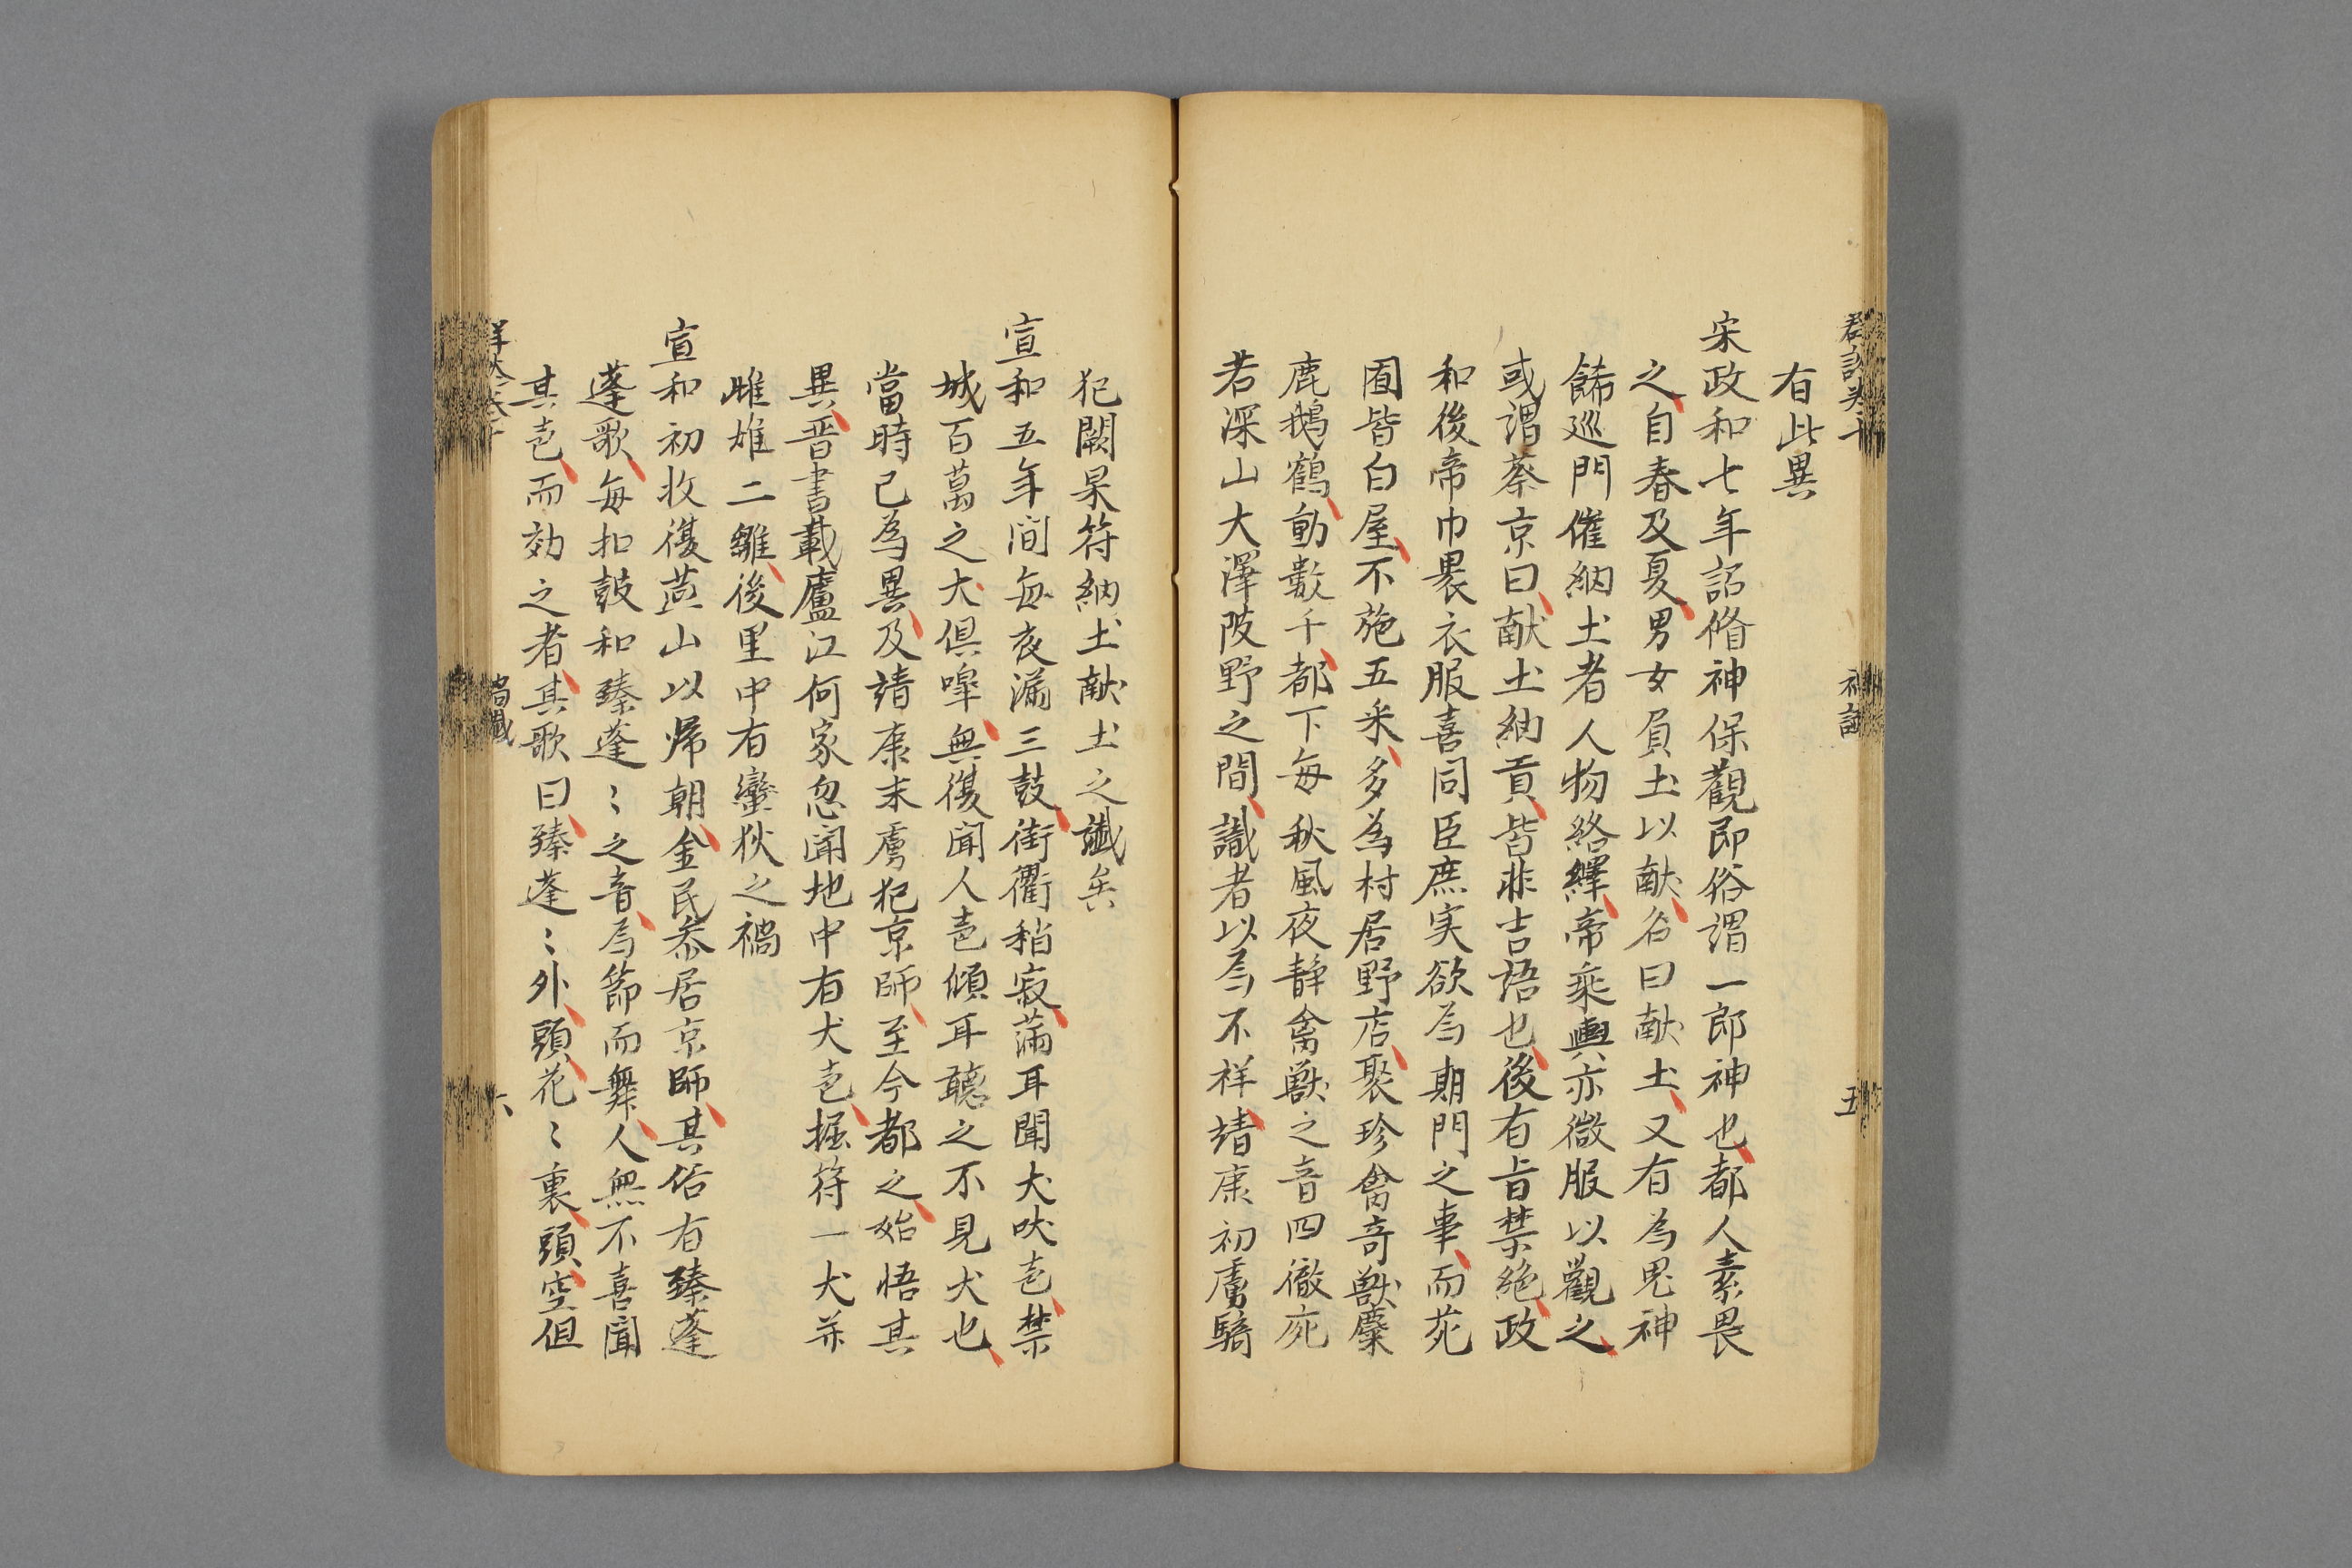 有此異
宋政和七年詔脩神保觀即俗謂一郎神也都人素畏
之自春及夏男女負土以献名曰献土又有為鬼神
餙巡門催納土者人物絡繹帝乘輿亦微服以觀之
或謂蔡京曰献土納貢皆非吉語也後有旨禁絶政
和後帝巾褁衣服喜同臣庶実欲為期門之事而苑
囿皆白屋不施五采多為村居野店聚珍禽奇獸麋
鹿鵝鶴動數千都下每秋風夜静禽獸之音四徹宛
若深山大澤陂野之間識者以為不祥靖康初虜騎
犯闕果符納土献土之讖矣
宣和五年間每夜漏三鼓街衢稍寂滿耳聞犬吠声禁
城百萬之犬俱嘷無復聞人声傾耳聽之不見犬也
當時已為異及靖康末虜犯京師至今都之始悟其
異晋書載廬江何家忽聞地中有犬声掘符一犬并
雌雄二雛後里中有蠻狄之禍
宣和初收復燕山以帰朝金民叅居京師其俗有臻蓬
蓬歌每扣鼓和臻蓬〻之音為節而舞人無不喜聞
其声而効之者其歌曰臻蓬〻外頭花〻裏頭空但
五
六